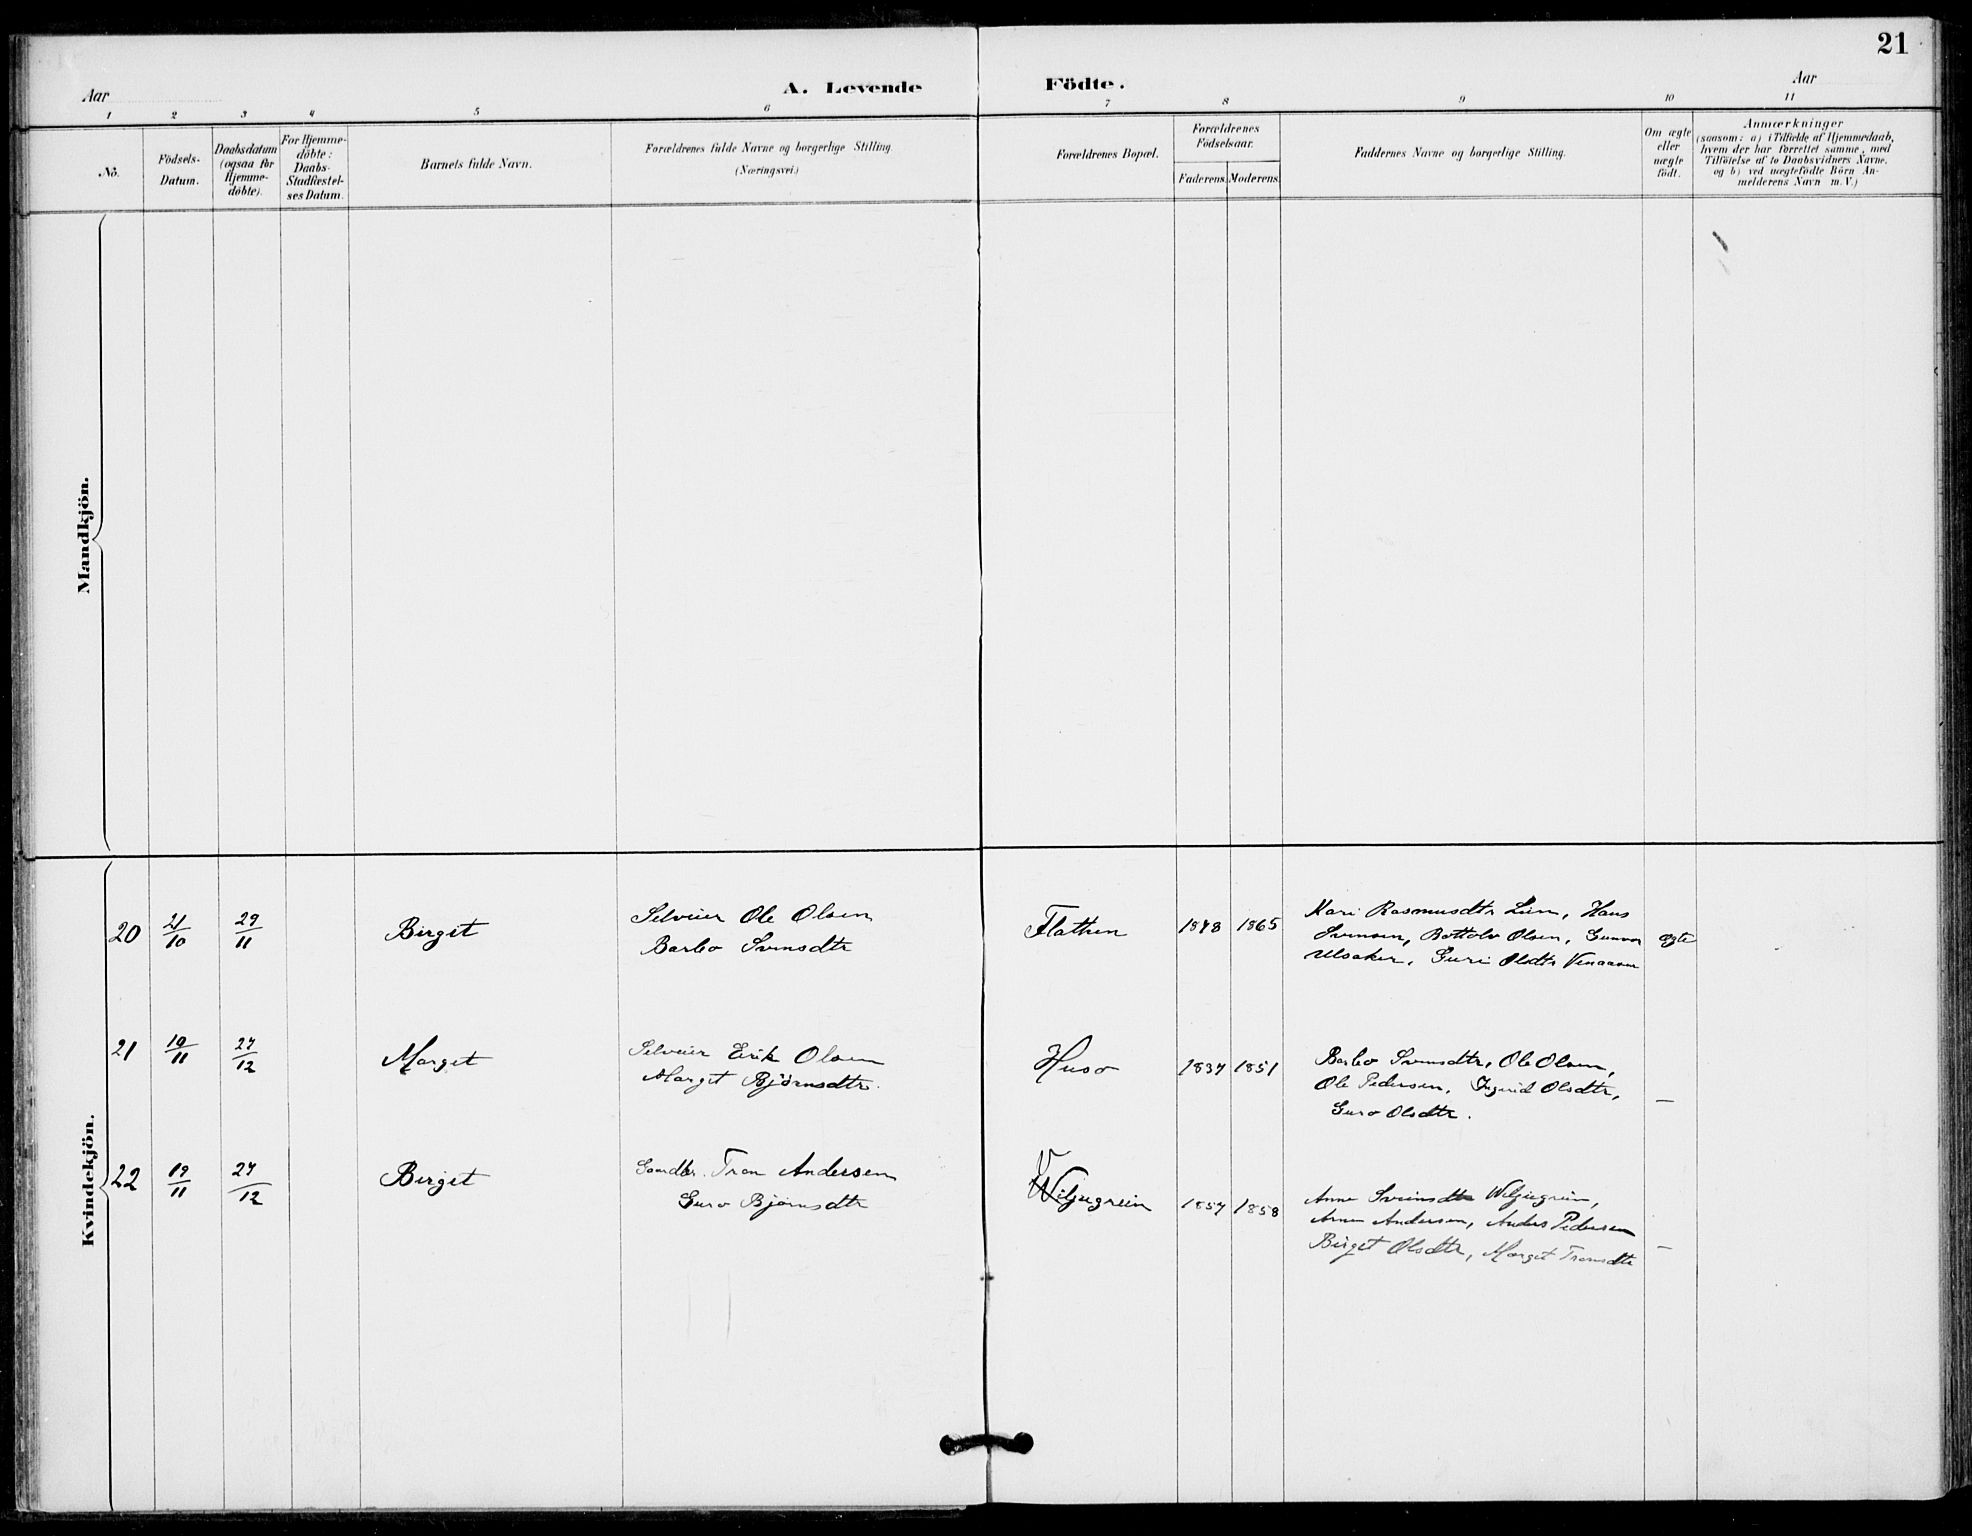 21
Aar
A. Levende Födte.
Aar
1 2 3 4 5 6 7 8 9 10 11
No.
Födsels-Datum.
Daabsdatum (ogsaa for Hjemme-döbte).
For Hjemme-döbte: Daabs-Stadfæstel-ses Datum.
Barnets fulde Navn.
Forældrenes fulde Navne og borgerlige Stilling
(Næringsvei.)
Forældrenes Bopæl.
Forældrenes Födselsaar.
Faderens. Moderens.
Faddernes Navne og borgerlige Stilling.
Om ægte eller uægte födt.
Anmærkninger
(saasom: a) i Tilfælde af Hjemmedaab,
hvem der har forrettet samme, med
Tilföielse af to Daabsvidners Navne,
og b) ved uægtefödte Börn An-
melderens Navn m. V.)
Mandkjön.
Kvindekjön.
20 21/10 29/11 Birget
Selveier Ole Olsen
Barbo Svensdtr
Flathen 1848 1865
Kari Rasmusdtr Lien, Hans
Svensen, Bottolv Olsen, Gunvor
Ulsaker, Guri Olsdtr
ægte
21 19/11 27/12 Marget
Selveier Erik Olsen
Marget Bjørnsdtr.
Huso 1837 1851
Barbo Svensdtr, Ole Olsen,
Ole Pedersen, Ingerid Olsdtr,
Guro Olsdtr.
—
22 19/11 27/12 Birget
Gaardbr. Tron Andersen
Guro Bjørnsdtr
Viljugrein 1857 1858
Anne Sveinsdtr Wiljugrein,
Arne Andersen, Anders Pedersen
Birget Olsdtr, Marget Tronsdtr
—